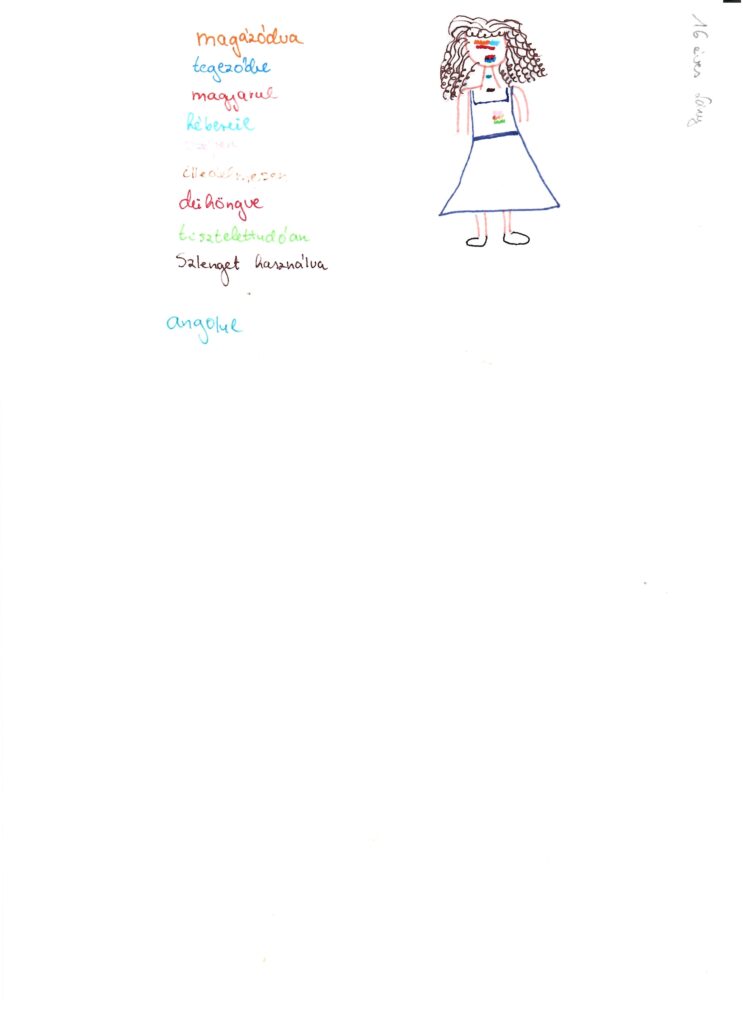 magázódva
tegeződve
magyarul
héberül
dühöngve
tisztelettudóan
Szlenget használva
angolul
16 éves lány